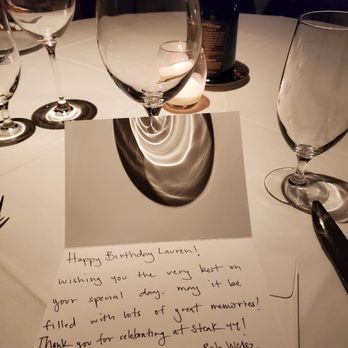 Happy Birthday Lauren!
wishing you the very best on
your special day. may it be
filled with lots of great memories!
Thank you for celebrating at Steak 44!